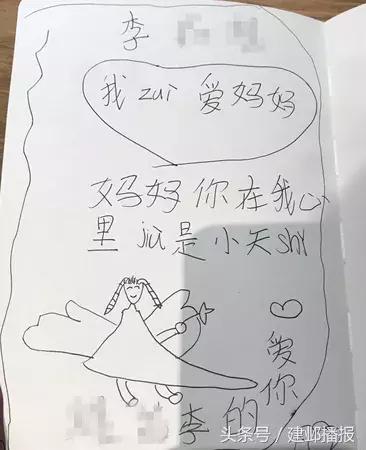 李
我zui爱妈妈
妈妈你在我心
里jiù是小天shǐ
爱你
李的
头条号/建邺播报